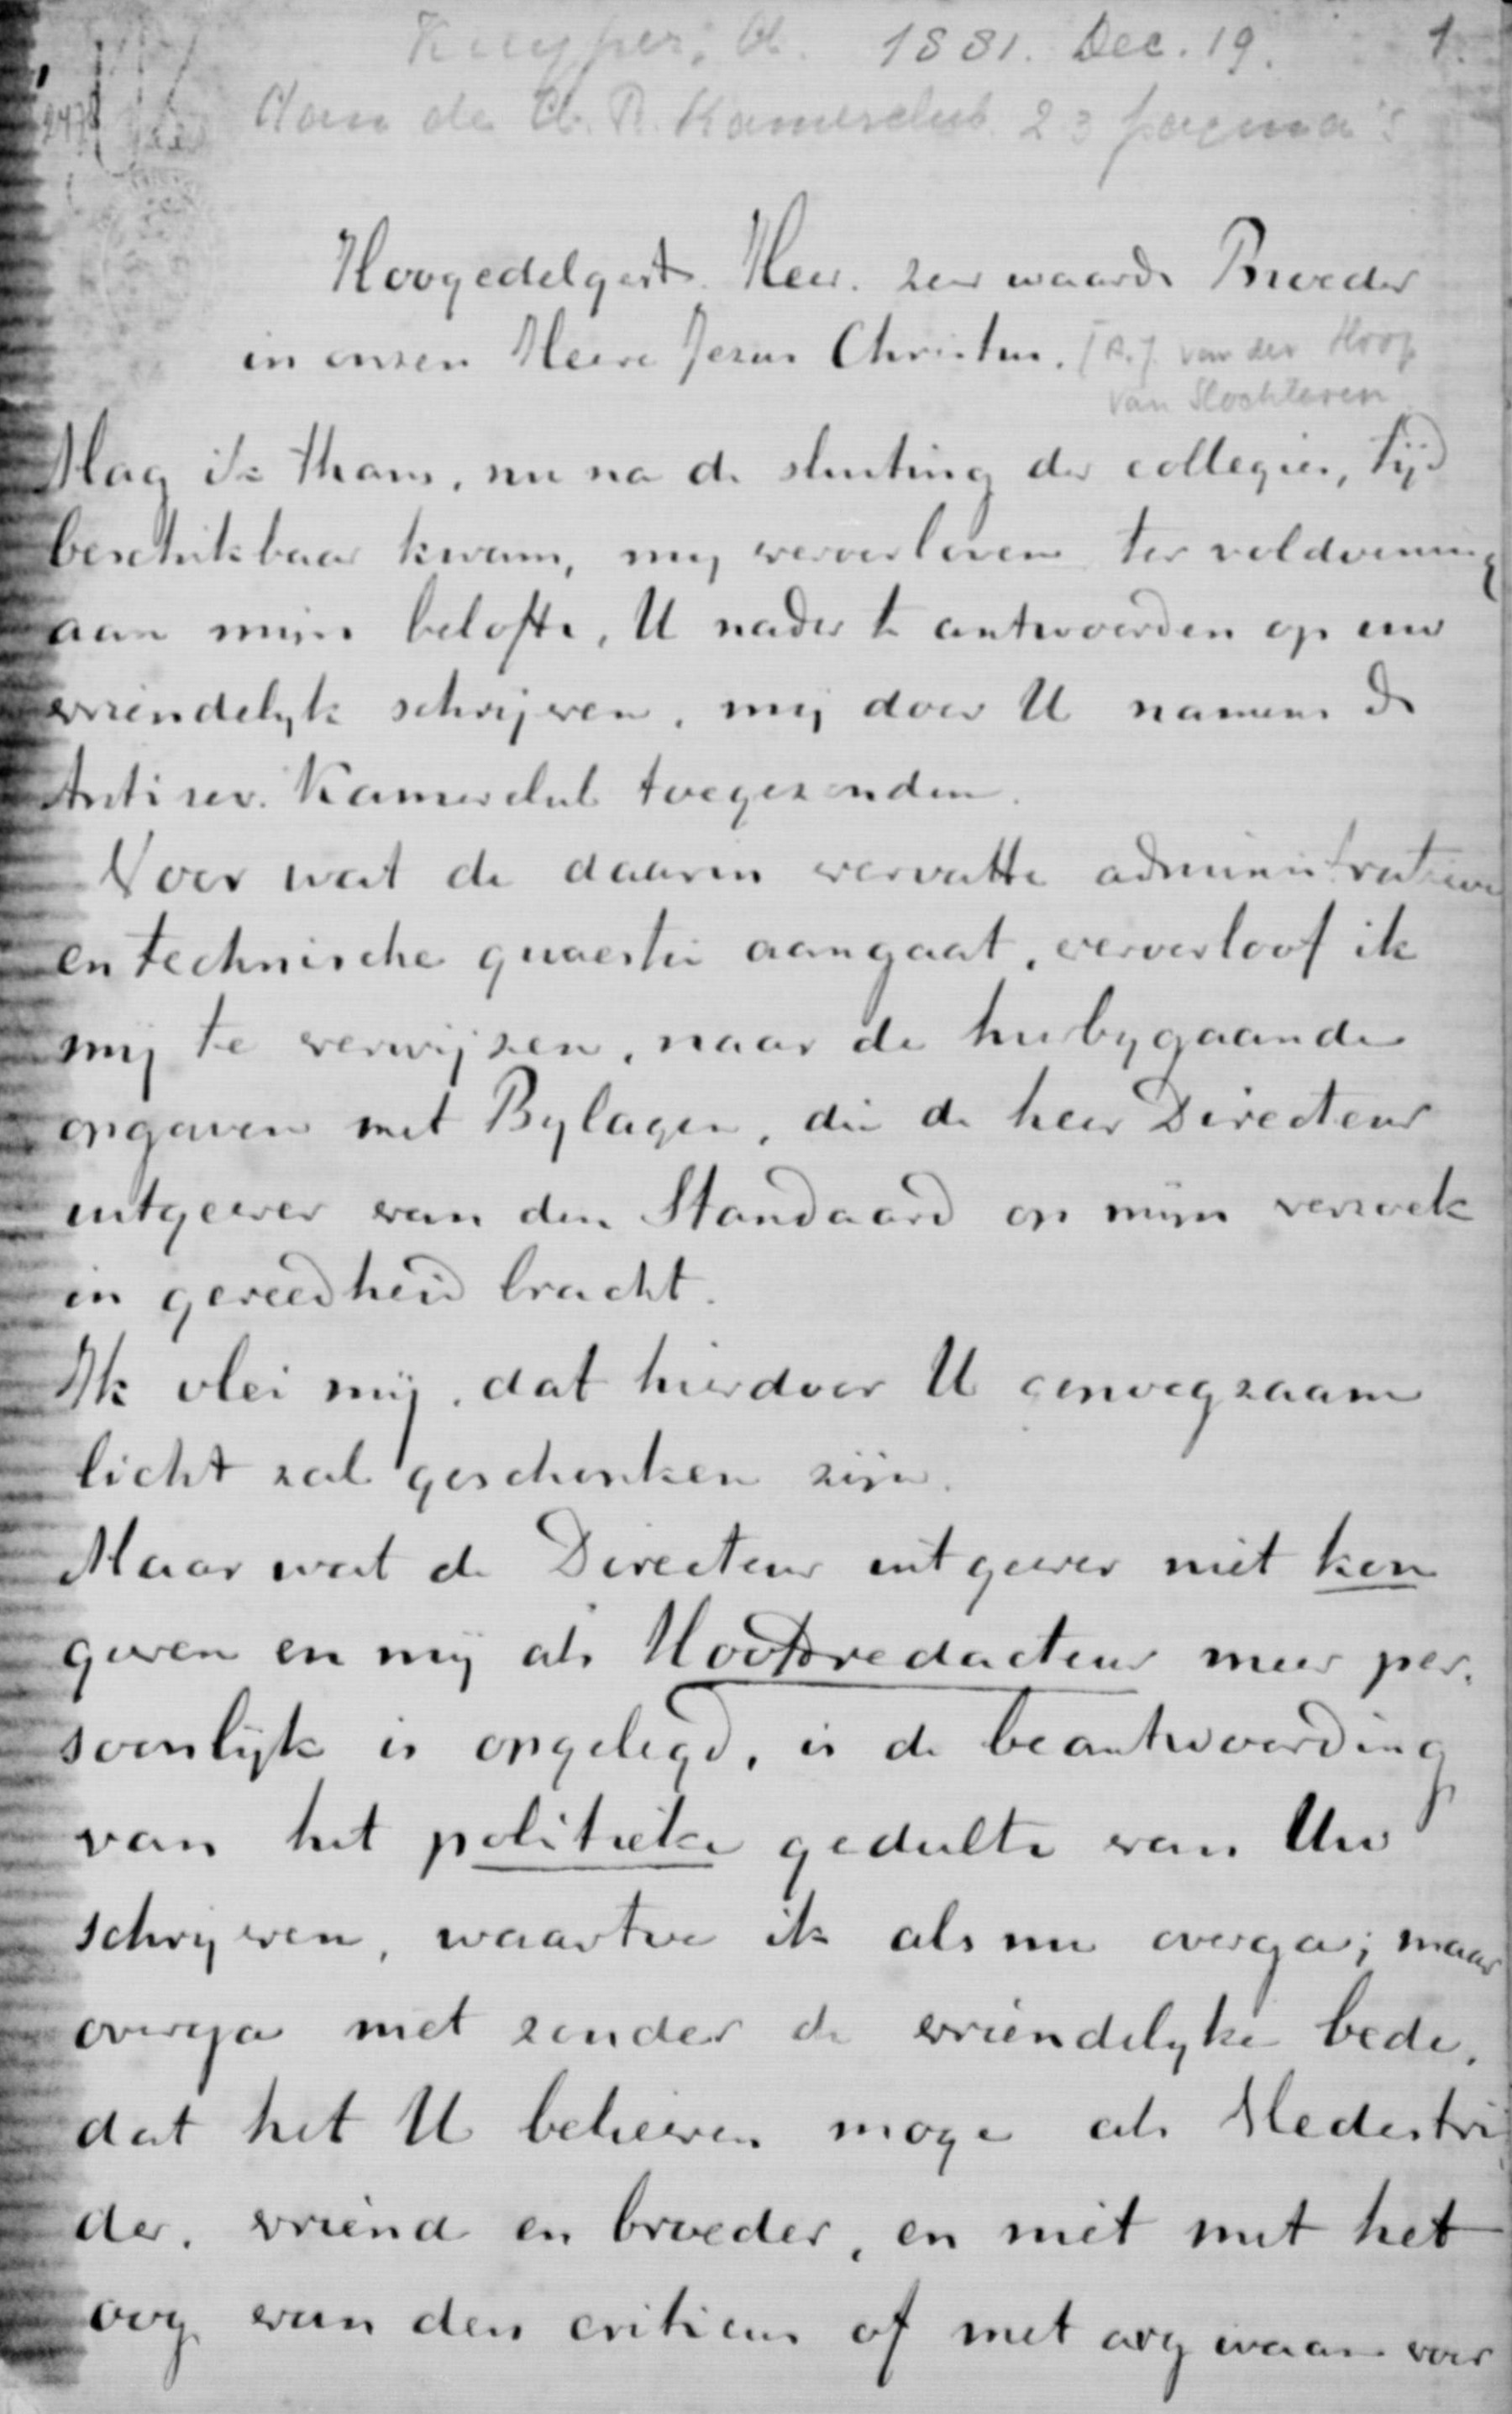 Kuyper, A. 1881. Dec. 19. 1.
Aan de A. R. Kamerclub 23 pagina's
Hoogedelgestr. Heer. zeer waarde Broeder
in onzen Heere Jezus Christus. [A.J. van der Hoop
van Slochteren
Mag ik thans, nu na de sluiting der collegies, tijd
beschikbaar kwam, mij veroorloven ter voldoening
aan mijn belofte, U nader te antwoorden op uw
vriendelijk schrijven, mij door U namens de
Antirev. Kamerclub toegezonden.
Voor wat de daarin vervatte administratieve
en technische quaestie aangaat, veroorloof ik
mij te verwijzen, naar de hierbijgaande
opgaven met Bylagen, die de heer Directeur
uitgever van den Standaard op mijn verzoek
in gereedheid bracht.
Ik vlei mij, dat hierdoor U genoegzaam
licht zal geschonken zijn.
Maar wat de Directeur uitgever niet kon
geven en mij als Hoofdredacteur meer per-
soonlijk is opgelegd, is de beantwoording
van het politieke gedeelte van Uw
schrijven, waartoe ik als nu overga; maar
overga niet zonder de vriendelyke bede,
dat het U believen moge als Medestrij
der, vriend en broeder, en niet met het
oog van den criticus of met argwaan voor